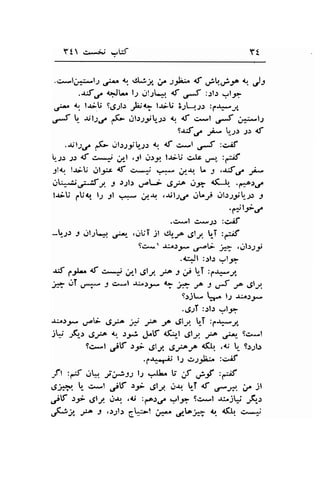 ۳۴ کتاب نخست ۳۴۱
ولی به هوش‌باش که منظور من پزشک به معنی راستین‌است.
جواب داد: کسی که بیماران را معالجه می‌کند.
پرسیدم: دربارهٔ ناخدا چه‌نظر داری؟ ناخدا به معنی
راستین کسی است که به دریانوردان حکم می‌راند یا کسی
که در دریا سفر می‌کند؟
گفت: کسی است که به دریانوردان حکم می‌راند.
گفتم: پس علت ناخدا بودن او، این نیست که در دریا
سفر می‌کند، و ما بدین سبب نیست که عنوان ناخدا به‌او
می‌دهیم. بلکه چون هنری خاص دارد و برکشتی‌نشینان
و دریانوردان فرمان می‌راند، بدین سبب او را به‌نام ناخدا
می‌خوانیم.
گفت: درست است.
گفتم: آیا برای هریک از آنان، یعنی بیماران و دریا-
نوردان، چیز خاصی سودمند است؟
جواب داد: البته.
پرسیدم: آیا فن و هنر برای این نیست که معلوم کند
برای هر کس و هر چیز چه سودمند است و سپس آن چیز
سودمند را مهیا سازد؟
جواب داد: آری.
پرسیدم: آیا برای هر هنر نیز هنری خاص سودمند
است؟ یعنی هنر برای اینکه کامل شود به هنری دیگر نیاز
دارد؟ یا نه، بلکه هرهنری برای خود کافی است؟
گفت: منظورت را نفهمیدم.
گفتم: گوش کن تا مطلب را روشن‌تر بیان کنم: اگر
از من بپرسی که آیا بدن برای خود کافی است یا بچیزی
دیگر نیازمند است؟ جواب می‌دهم: نه، بدن برای خود کافی
نیست بلکه به چیزهایی معین احتیاج دارد، و هنر پزشکی